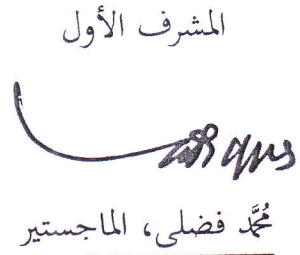 المشرف الأول
مُحَمَّد فضلى، الماجستير